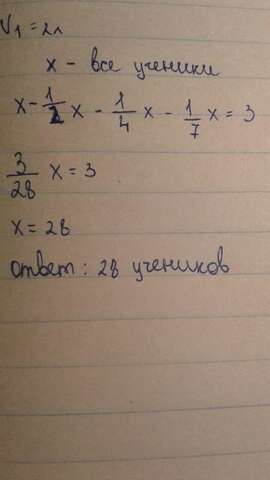 V₁ = 2л
x - все ученики
x - 1/2 x - 1/4 x - 1/7 x = 3
3/28 x = 3
x = 28
ответ: 28 учеников